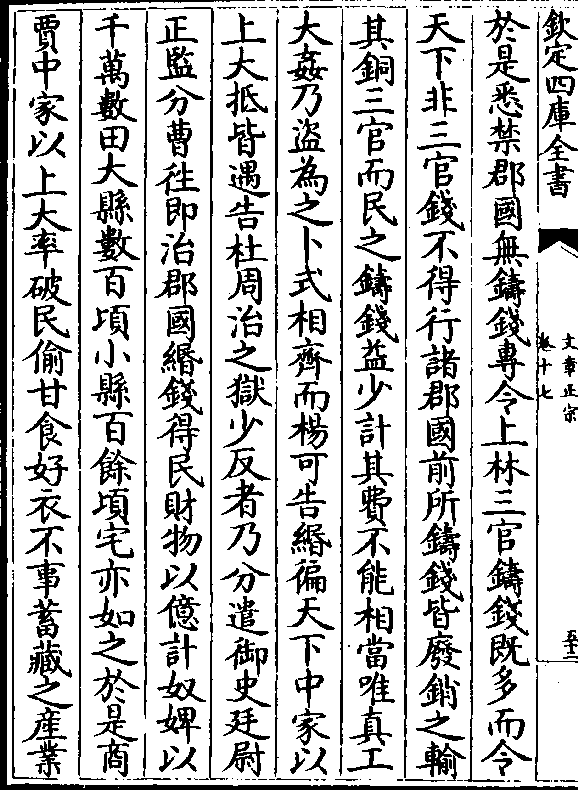 欽定四庫全書
文章正宗
卷十七
五十二
於是悉禁郡國無鑄錢專令上林三官鑄錢既多而令
天下非三官錢不得行諸郡國前所鑄錢皆廢銷之輸
其銅三官而民之鑄錢益少計其費不能相當唯真工
大姦乃盜為之卜式相齊而楊可告緡徧天下中家以
上大抵皆遇告杜周治之獄少反者乃分遣御史廷尉
正監分曹徃即治郡國緡錢得民財物以億計奴婢以
千萬數田大縣數百頃小縣百餘頃宅亦如之於是商
賈中家以上大率破民偷甘食好衣不事蓄藏之產業